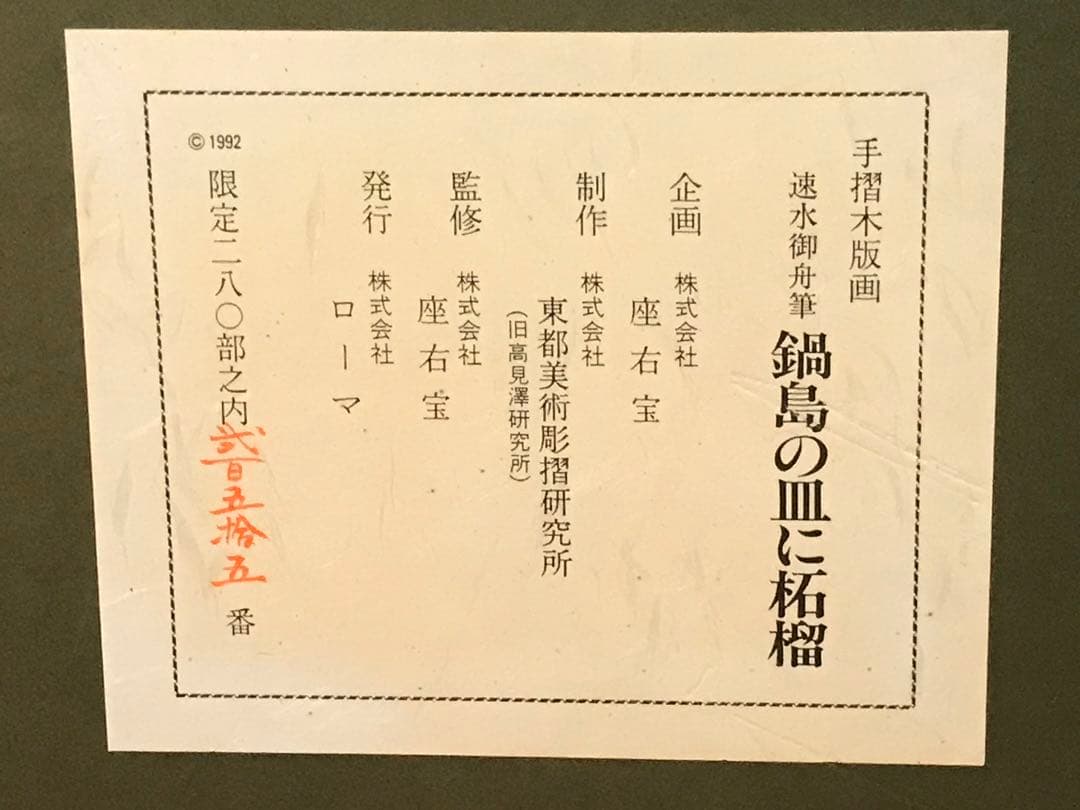 手摺木版画
速水御舟筆 鍋島の皿に柘榴
企画 株式会社 座右宝
制作 株式会社 東都美術彫摺研究所
(旧高見澤研究所)
監修 株式会社 座右宝
発行 株式会社 ローマ
© 1992
限定二八〇部之内弐百五拾五番